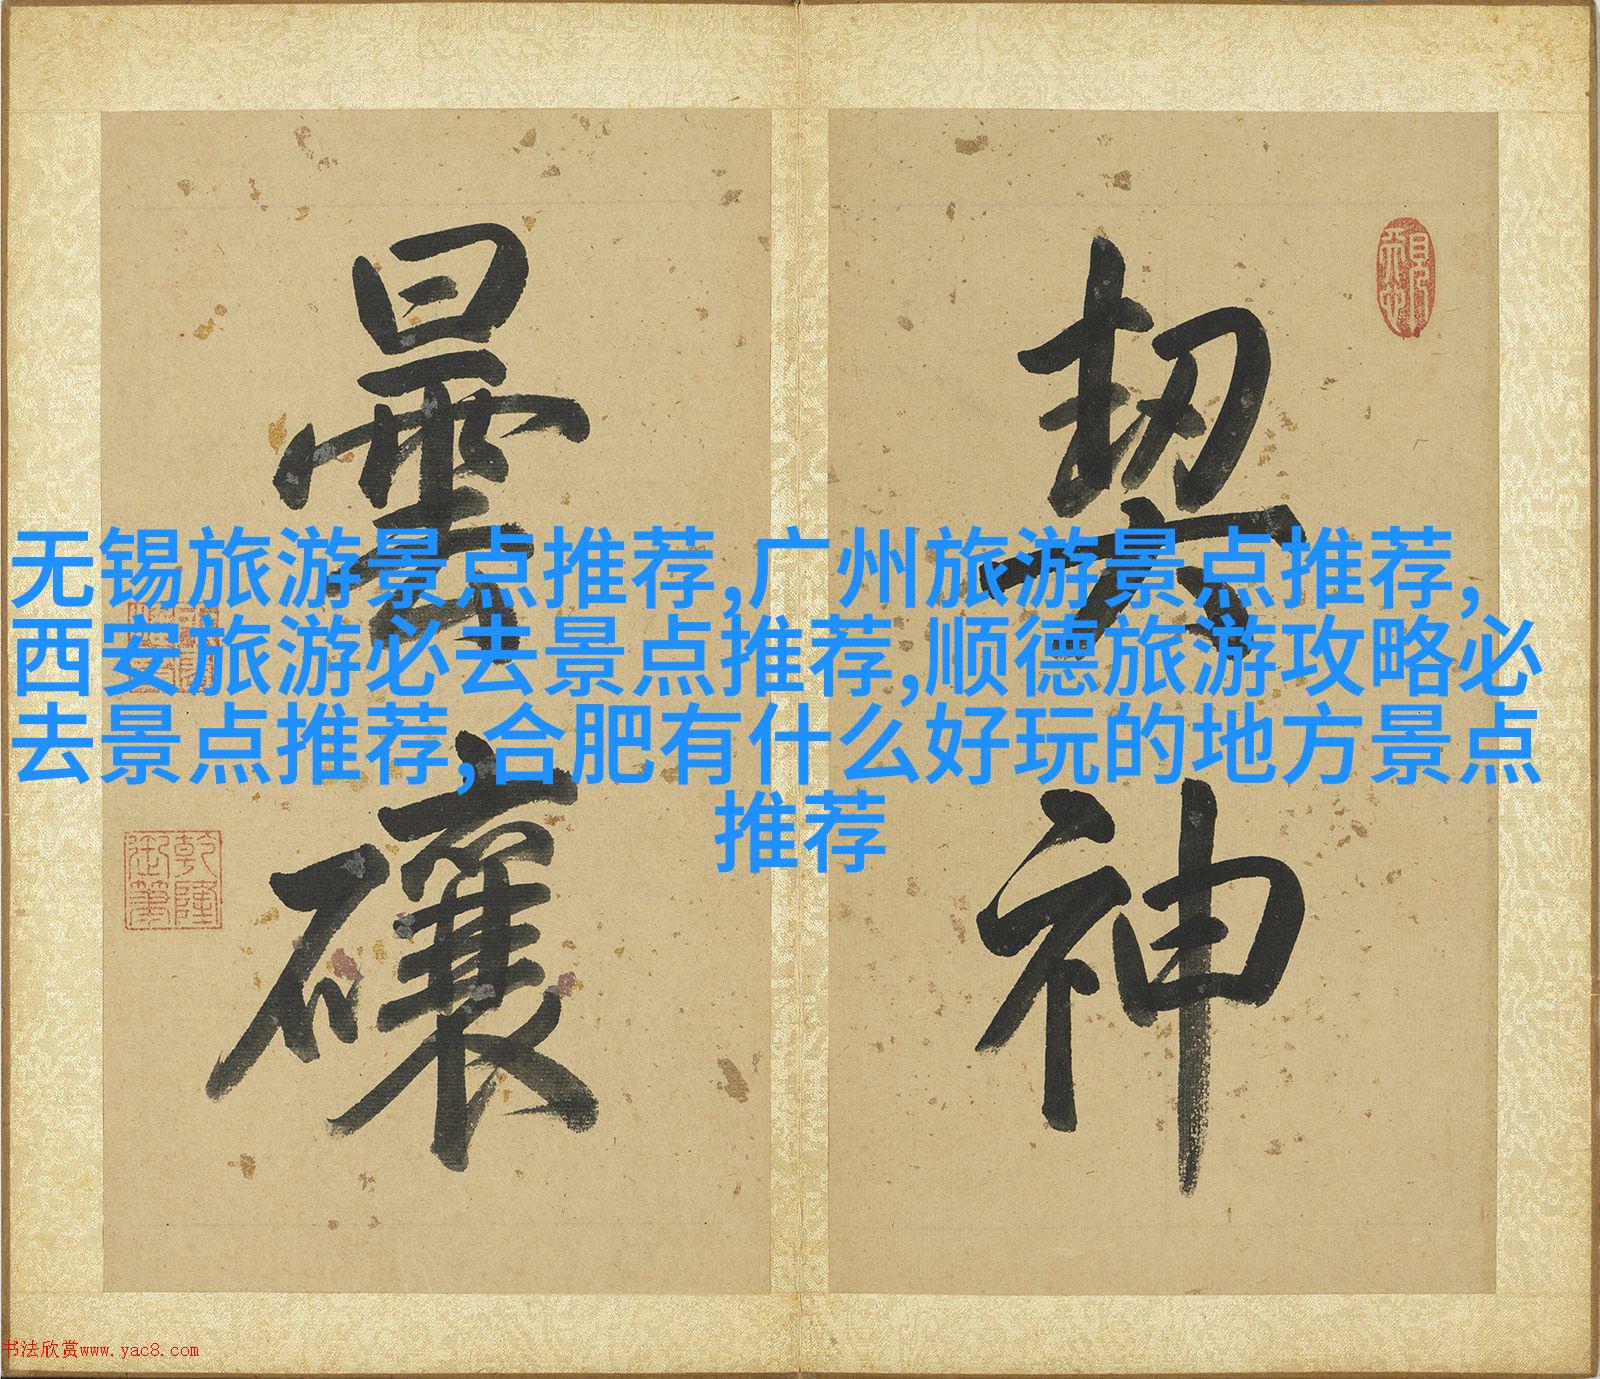 契神
曇礦
乾隆
御筆
无锡旅游景点推荐,广州旅游景点推荐,
西安旅游必去景点推荐,顺德旅游攻略必
去景点推荐,合肥有什么好玩的地方景点
推荐
书法欣赏www.yac8.com